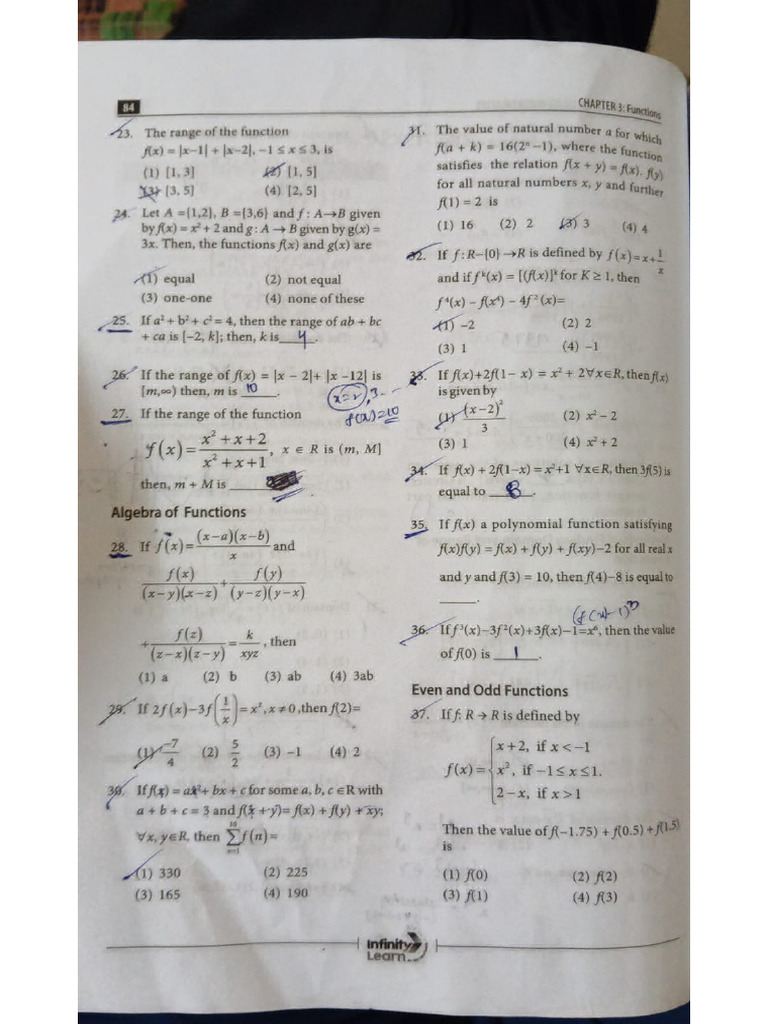 84
CHAPTER 3: Functions
23. The range of the function
f(x) = |x−1| + |x−2|, −1 ≤ x ≤ 3, is
(1) [1, 3] (2) [1, 5]
(3) [3, 5] (4) [2, 5]
24. Let A ={1,2}, B ={3,6} and f : A→B given
by f(x) = x² + 2 and g : A → B given by g(x) =
3x. Then, the functions f(x) and g(x) are
(1) equal (2) not equal
(3) one-one (4) none of these
25. If a² + b² + c² = 4, then the range of ab + bc
+ ca is [−2, k]; then, k is 4.
26. If the range of f(x) = |x − 2|+ |x −12| is
[m,∞) then, m is 10.
x=2, 3---
f(x)=10
27. If the range of the function
f(x) = (x² + x + 2)/(x² + x + 1), x ∈ R is (m, M]
then, m + M is
Algebra of Functions
28. If f(x) = (x−a)(x−b)/x and
f(x)/((x−y)(x−z)) + f(y)/((y−z)(y−x))
+ f(z)/((z−x)(z−y)) = k/xyz, then
(1) a (2) b (3) ab (4) 3ab
29. If 2f(x)−3f(1/x) = x², x ≠ 0, then f(2)=
(1) −7/4 (2) 5/2 (3) −1 (4) 2
30. If f(x) = ax²+ bx + c for some a, b, c ∈R with
a + b + c = 3 and f(x + y)= f(x) + f(y) + xy;
∀x, y∈R, then ∑ₙ₌₁¹⁰ f(n)=
(1) 330 (2) 225
(3) 165 (4) 190
31. The value of natural number a for which
f(a + k) = 16(2ⁿ −1), where the function
satisfies the relation f(x + y) = f(x). f(y)
for all natural numbers x, y and further
f(1) = 2 is
(1) 16 (2) 2 (3) 3 (4) 4
32. If f : R−{0} →R is defined by f(x) = x + 1/x
and if fᵏ(x) = [(f(x)]ᵏ for K ≥ 1, then
f⁴(x) − f(x⁴) − 4f²(x)=
(1) −2 (2) 2
(3) 1 (4) −1
33. If f(x)+2f(1− x) = x² + 2∀x∈R, then f(x)
is given by
(1) (x−2)²/3 (2) x² − 2
(3) 1 (4) x² + 2
34. If f(x) + 2f(1−x) = x²+1 ∀x∈R, then 3f(5) is
equal to 8.
35. If f(x) a polynomial function satisfying
f(x)f(y) = f(x) + f(y) + f(xy)−2 for all real x
and y and f(3) = 10, then f(4)−8 is equal to
(f(x)-1)³
36. If f³(x)−3f²(x)+3f(x)−1=x⁶, then the value
of f(0) is 1.
Even and Odd Functions
37. If f: R → R is defined by
f(x) = { x+2, if x < −1
x², if −1 ≤ x ≤ 1.
2−x, if x > 1
Then the value of f(−1.75) + f(0.5) + f(1.5)
is
(1) f(0) (2) f(2)
(3) f(1) (4) f(3)
Infinity
Learn